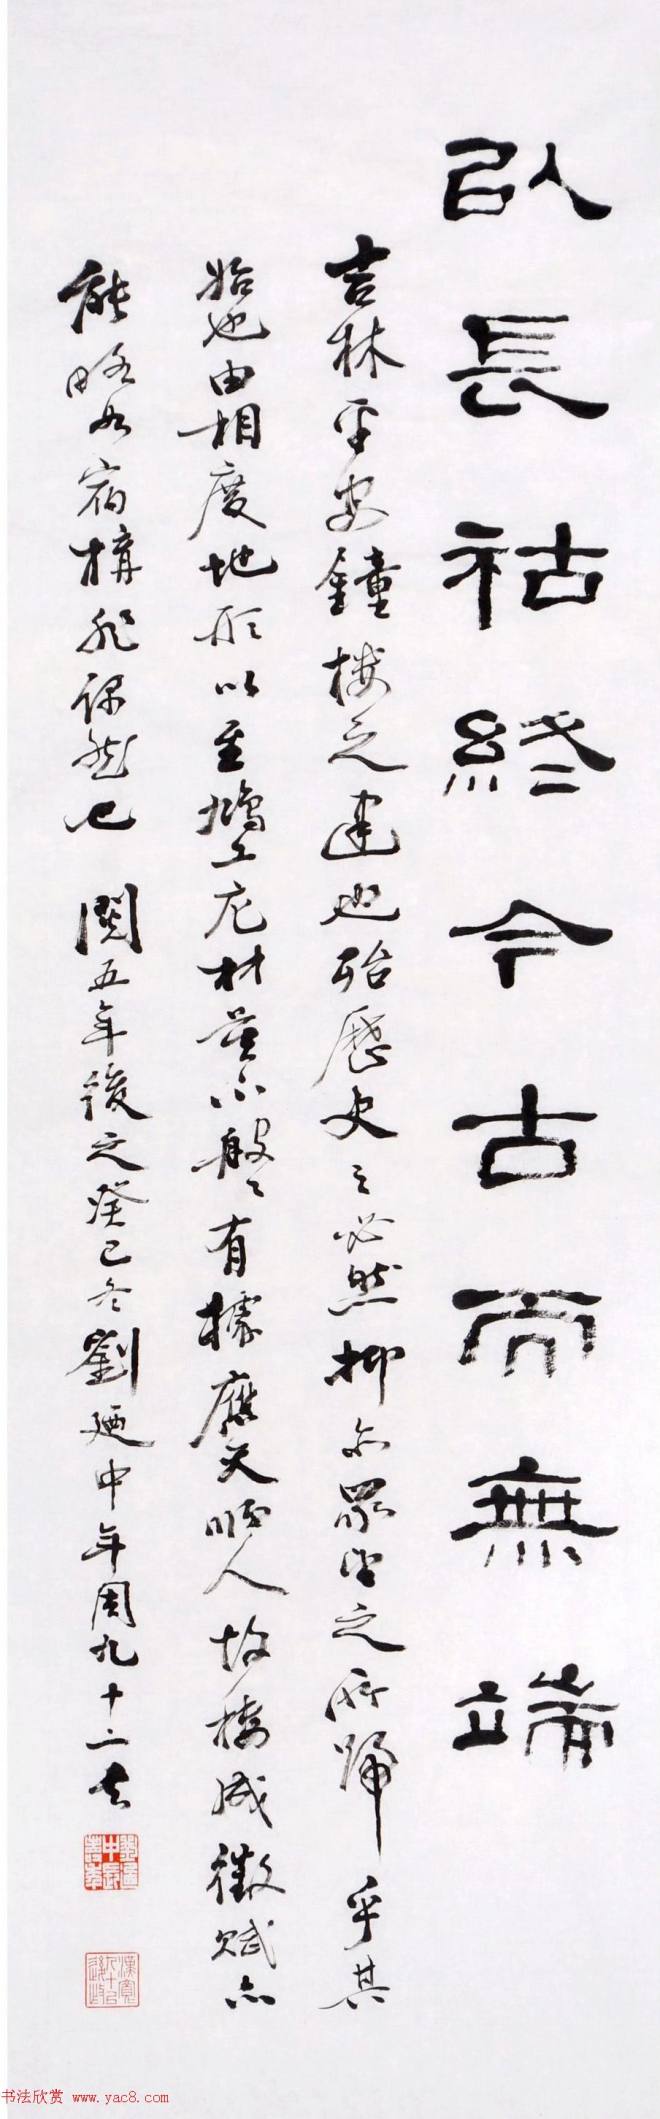 以長祜終今古而無端
吉林平安鐘樓之建也殆歷史之必然抑亦眾望之所歸乎其
始也由相度地形以至鳩工庀材莫不般般有據應天順人故樓成徵賦亦
能略如宿構非偶然也 閱五年後之癸巳冬劉廼中年周九十二矣
书法欣赏 www.yac8.com